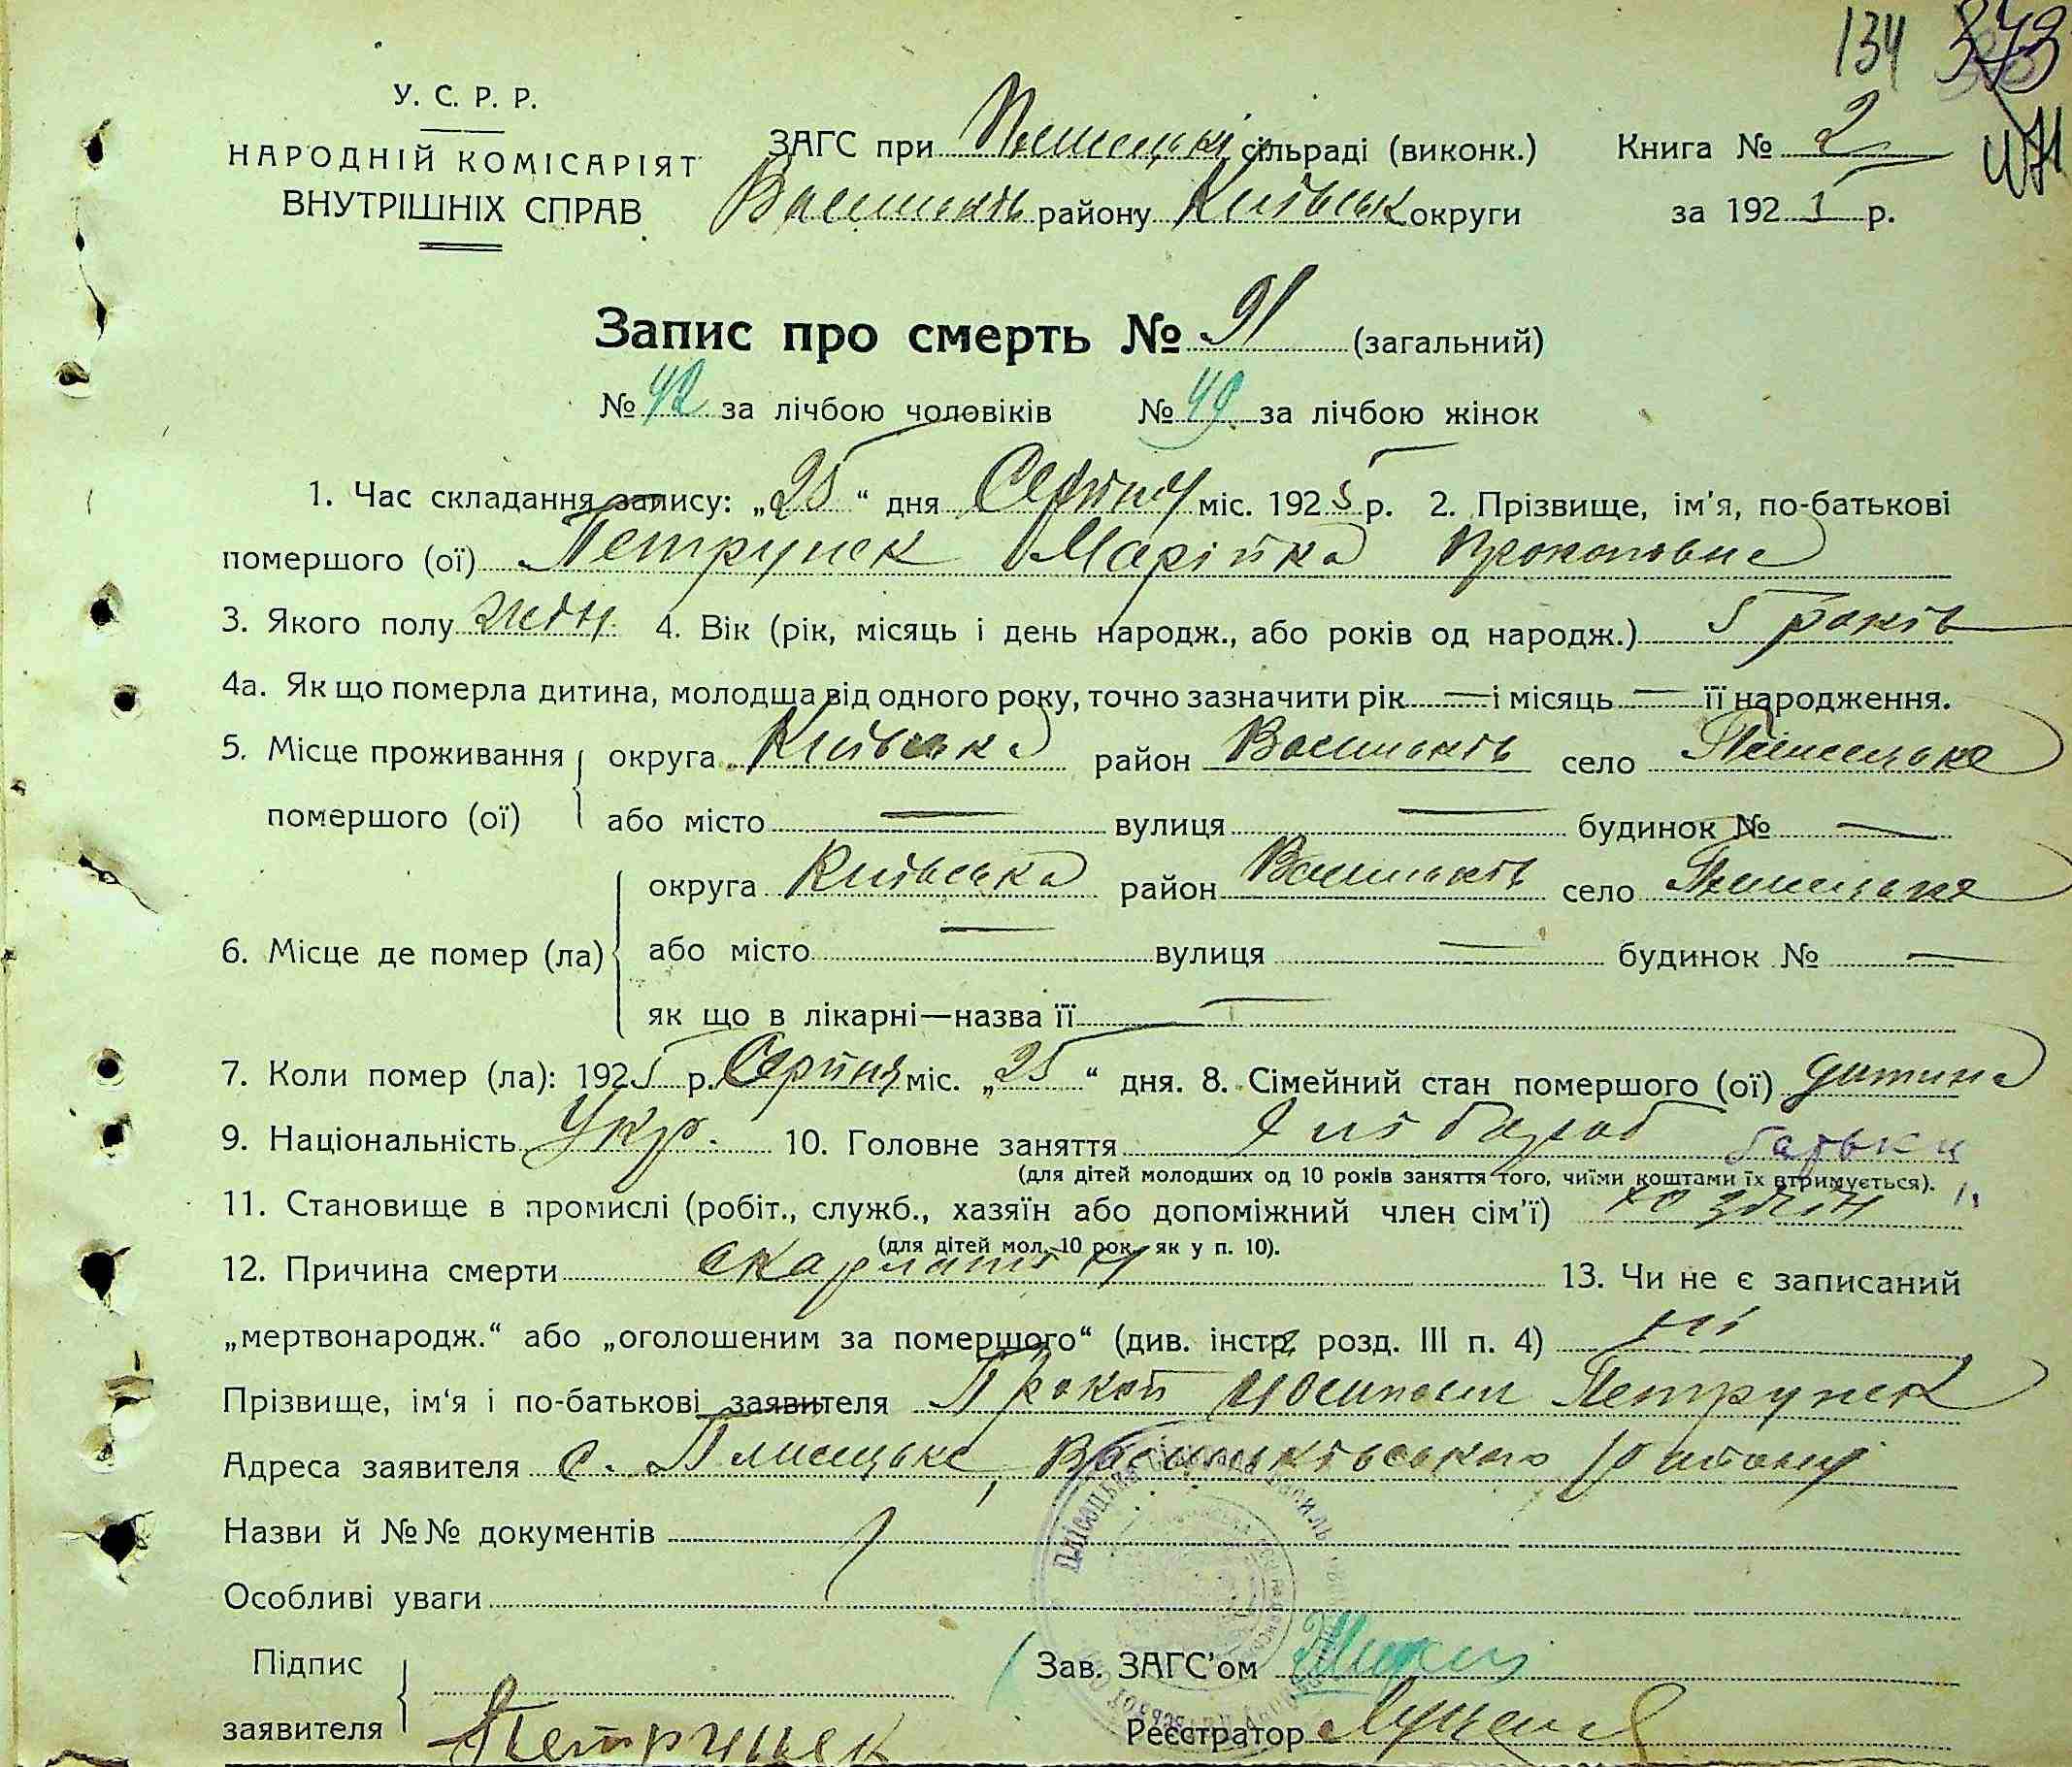 134 373
471
У. С. Р. Р.
НАРОДНІЙ КОМІСАРІЯТ
ВНУТРІШНІХ СПРАВ
ЗАГС при Плисецькі сільраді (виконк.)
Васильків району Київськ округи
Книга № 2
за 1925 р.
Запис про смерть № 91 (загальний)
№ 42 за лічбою чоловіків № 49 за лічбою жінок
1. Час складання запису: „25“ дня Серпня міс. 1925 р. 2. Прізвище, ім'я, по-батькові
помершого (ої) Петрунек Марійка Прокоповна
3. Якого полу жін 4. Вік (рік, місяць і день народж., або років од народж.) 5 років
4а. Як що померла дитина, молодша від одного року, точно зазначити рік — і місяць — її народження.
5. Місце проживання округа Київська район Васильків село Плисецьке
помершого (ої) або місто — вулиця — будинок № —
округа Київська район Васильків село Плисецьке
6. Місце де помер (ла) або місто — вулиця — будинок № —
як що в лікарні—назва її —
7. Коли помер (ла): 1925 р. Серпня міс. „25“ дня. 8. Сімейний стан помершого (ої) дитина
9. Національність Укр. 10. Головне заняття батьки
(для дітей молодших од 10 років заняття того, чиїми коштами їх втримується).
11. Становище в промислі (робіт., служб., хазяїн або допоміжний член сім'ї)
(для дітей мол. 10 рок. як у п. 10).
12. Причина смерти скарлатіна 13. Чи не є записаний
„мертвонародж.“ або „оголошеним за помершого“ (див. інстр. розд. III п. 4) ні
Прізвище, ім'я і по-батькові заявителя Прокоп Петрунек
Адреса заявителя с. Плисецьке, Васильківського району
Назви й №№ документів
Особливі уваги
Підпис
заявителя Петрунек
Зав. ЗАГС'ом
Реєстратор